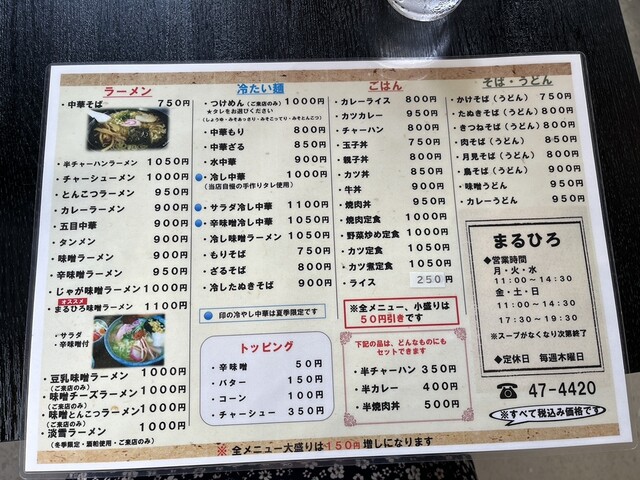 ラーメン
・中華そば 750円
・半チャーハンラーメン 1050円
・チャーシューメン 1000円
・とんこつラーメン 950円
・カレーラーメン 900円
・五目中華 900円
・タンメン 900円
・味噌ラーメン 900円
・辛味噌ラーメン 950円
・じゃが味噌ラーメン 1000円
オススメ
・まるひろ味噌ラーメン 1100円
・サラダ
・辛味噌付
・豆乳味噌ラーメン 1000円
(ご来店のみ)
・味噌チーズラーメン 1000円
(ご来店のみ)
・味噌とんこつラーメン 1000円
(ご来店のみ)
・淡雪ラーメン 1000円
(冬季限定・酒粕使用・ご来店のみ)
冷たい麺
・つけめん(ご来店のみ) 1000円
★タレをお選びください
(しょうゆ・みそあっさり・みそこってり・みそとんこつ)
・中華もり 800円
・中華ざる 850円
・水中華 900円
・冷し中華 1000円
(当店自慢の手作りタレ使用)
・サラダ冷し中華 1100円
・辛味噌冷し中華 1050円
・冷し味噌ラーメン 1050円
・もりそば 750円
・ざるそば 800円
・冷したぬきそば 900円
印の冷やし中華は夏季限定です
トッピング
・辛味噌 50円
・バター 150円
・コーン 100円
・チャーシュー 350円
ごはん
・カレーライス 800円
・カツカレー 950円
・チャーハン 800円
・玉子丼 750円
・親子丼 800円
・カツ丼 850円
・牛丼 900円
・焼肉丼 950円
・焼肉定食 1000円
・野菜炒め定食 1000円
・カツ定食 1050円
・カツ煮定食 1050円
・ライス 250円
※全メニュー、小盛りは
50円引きです
下記の品は、どんなものにも
セットできます
・半チャーハン 350円
・半カレー 400円
・半焼肉丼 500円
そば・うどん
・かけそば(うどん) 750円
・たぬきそば(うどん) 800円
・きつねそば(うどん) 800円
・肉そば(うどん) 850円
・月見そば(うどん) 800円
・鳥そば(うどん) 900円
・味噌うどん 950円
・カレーうどん 950円
まるひろ
◆営業時間
月・火・水
11:00〜14:30
金・土・日
11:00〜14:30
17:30〜19:30
※スープがなくなり次第終了
◆定休日 毎週木曜日
☎ 47-4420
※すべて税込み価格です
※全メニュー大盛りは150円増しになります